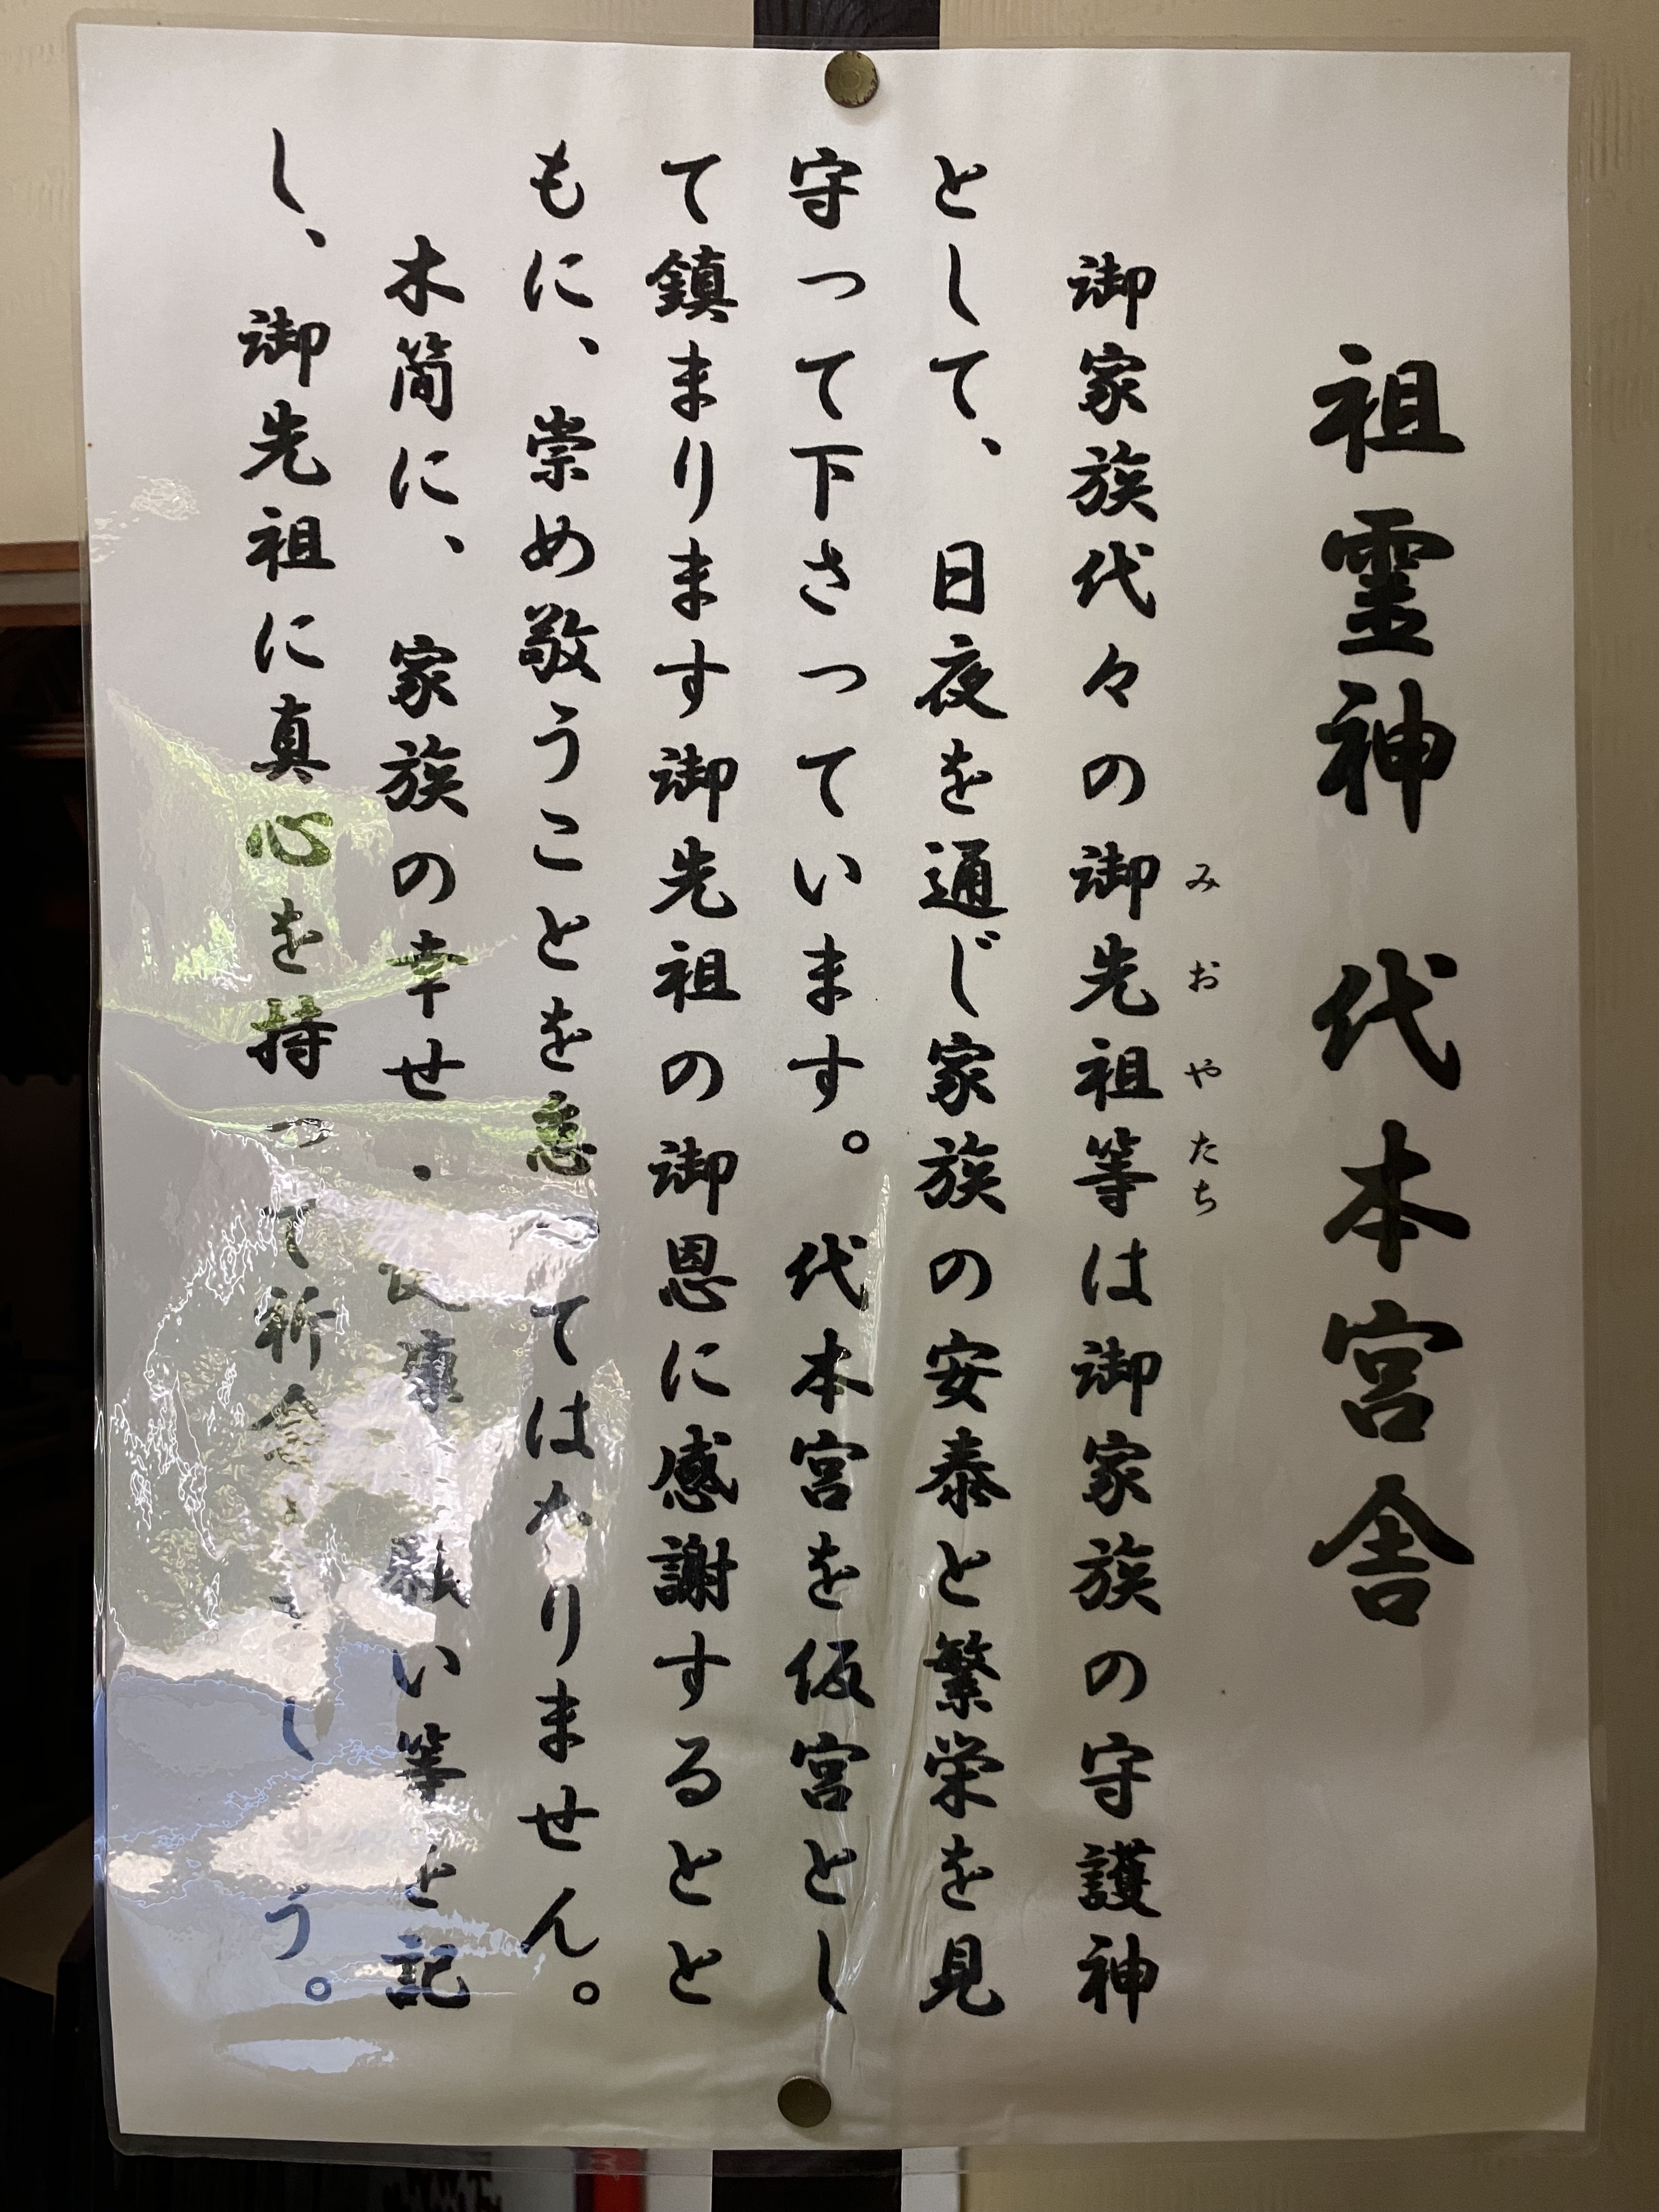 祖霊神 代本宮舎
みおやたち
御家族代々の御先祖等は御家族の守護神
として、日夜を通じ家族の安泰と繁栄を見
守って下さっています。代本宮を仮宮とし
て鎮まります御先祖の御恩に感謝するとと
もに、崇め敬うことを怠ってはなりません。
木簡に、家族の幸せ・健康・願い等を記
し、御先祖に真心を持って祈念しましょう。